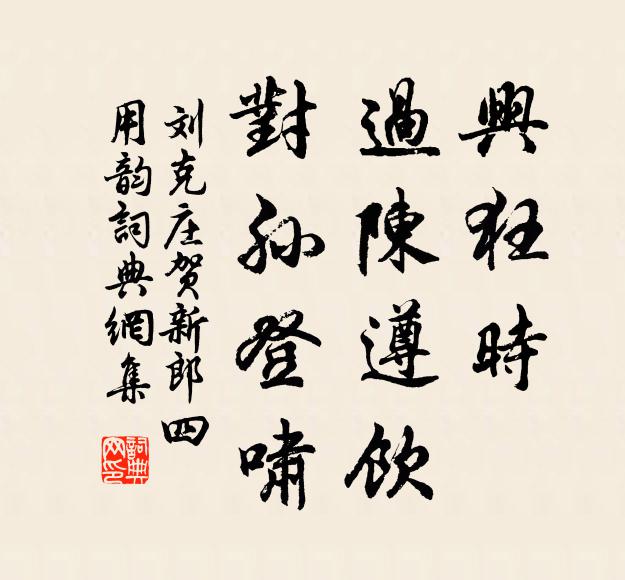 興狂時
過陳遵飲
對孙登嘯
刘克庄贺新郎四
用韵詞典網集
詞典
网印